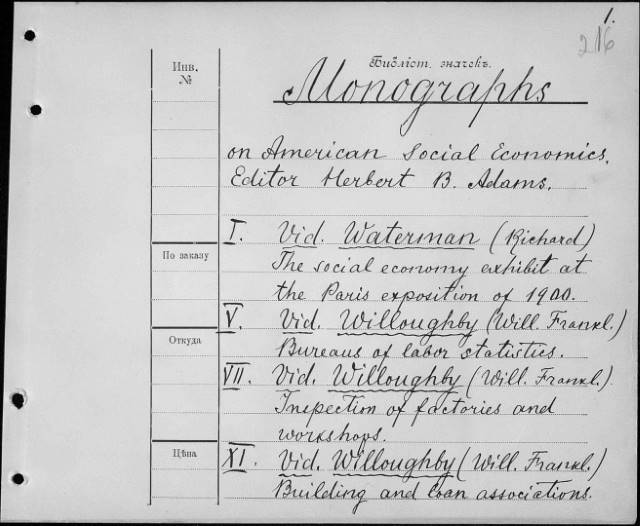 1.
216
Инв.
№
Библіот. значекъ.
Monographs
on American Social Economics.
Editor Herbert B. Adams.
I. Vid. Waterman (Richard)
The social economy exhibit at
the Paris exposition of 1900.
По заказу
V. Vid. Willoughby (Will. Frankl.)
Откуда
Bureaus of labor statistics.
VII. Vid. Willoughby (Will. Frankl.)
Inspection of factories and
workshops.
Цѣна
XI. Vid. Willoughby (Will. Frankl.)
Building and loan associations.